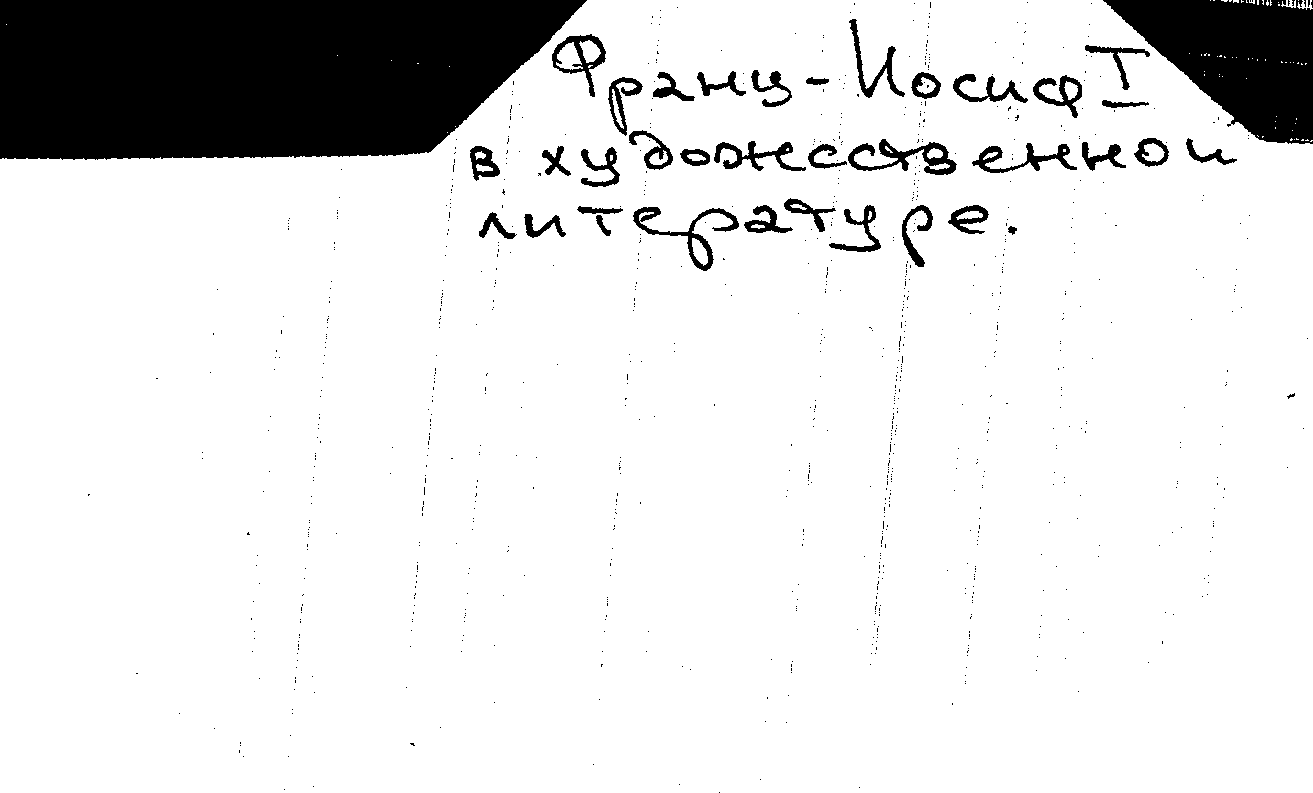 Франц-Иосиф I
в художественной
литературе.